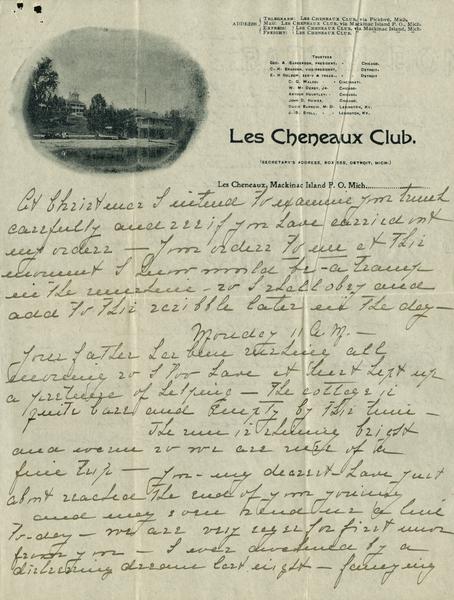 ADDRESS
TELEGRAMS: LES CHENEAUX CLUB, via Pickford, Mich.
MAIL: LES CHENEAUX CLUB, Mackinac Island P. O., Mich.
EXPRESS: LES CHENEAUX CLUB, via Mackinac Island, Mich.
FREIGHT: LES CHENEAUX CLUB,
TRUSTEES
PRESIDENT, CHICAGO.
VICE-PRESIDENT, DETROIT.
DETROIT
CINCINNATI.
CHICAGO.
ARTHUR HUNTLEY, CHICAGO.
CHICAGO.
LEXINGTON, KY.
LEXINGTON, KY.
Les Cheneaux Club.
(SECRETARY'S ADDRESS, BOX 555, DETROIT, MICH.)
Les Cheneaux, Mackinac Island P. O. Mich.
At Christmas I intend to examine your trunk
carefully and see if you have carried out
my orders — Your orders to me at this
moment I know would be - a tramp
in the sunshine - so I shall obey and
add to this scribble later in the day —
Monday 11 A.M. —
Your father has been rushing all
morning so I too have at least kept up
a pretense of helping — The cottage is
quite bare and empty by this time —
The sun is shining bright
and warm so we are sure of a
fine trip — You - my dearest - have just
about reached the end of your journey
and may even send us a line
to-day — we are very eager for first news
from you — I was awakened by a
distressing dream last night — fancying